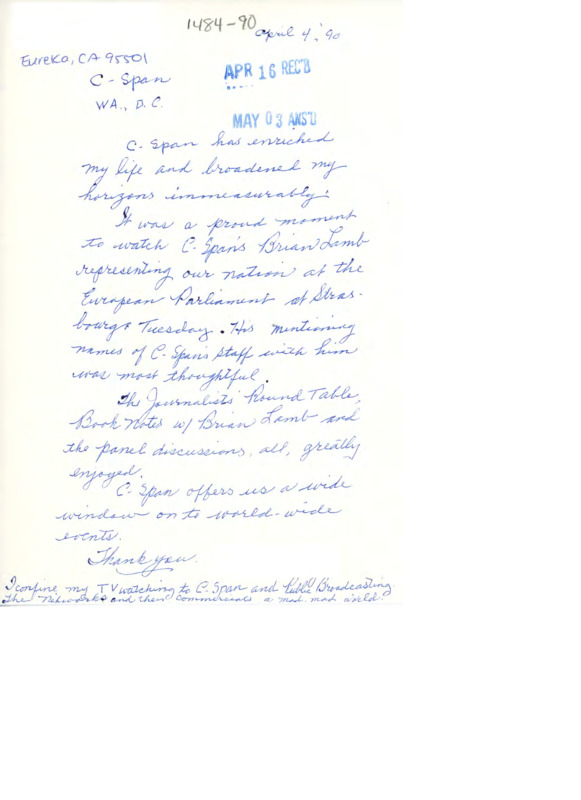 1484-90
April 4, '90
Eureka, CA 95501
C-Span
WA., D.C.
APR 16 REC'D
MAY 03 ANS'D
C-Span has enriched
my life and broadened my
horizons immeasurably!
It was a proud moment
to watch C-Span's Brian Lamb
representing our nation at the
European Parliament at Stras-
bourgo Tuesday. His mentioning
names of C-Span's staff with him
was most thoughtful.
The Journalists' Round Table,
Book Notes w/ Brian Lamb and
the panel discussions, all, greatly
enjoyed.
C-Span offers us a wide
window on to world-wide
events.
Thank you.
I confine my TV watching to C-Span and Public Broadcasting.
The Networks and their commercials a mad, mad world!